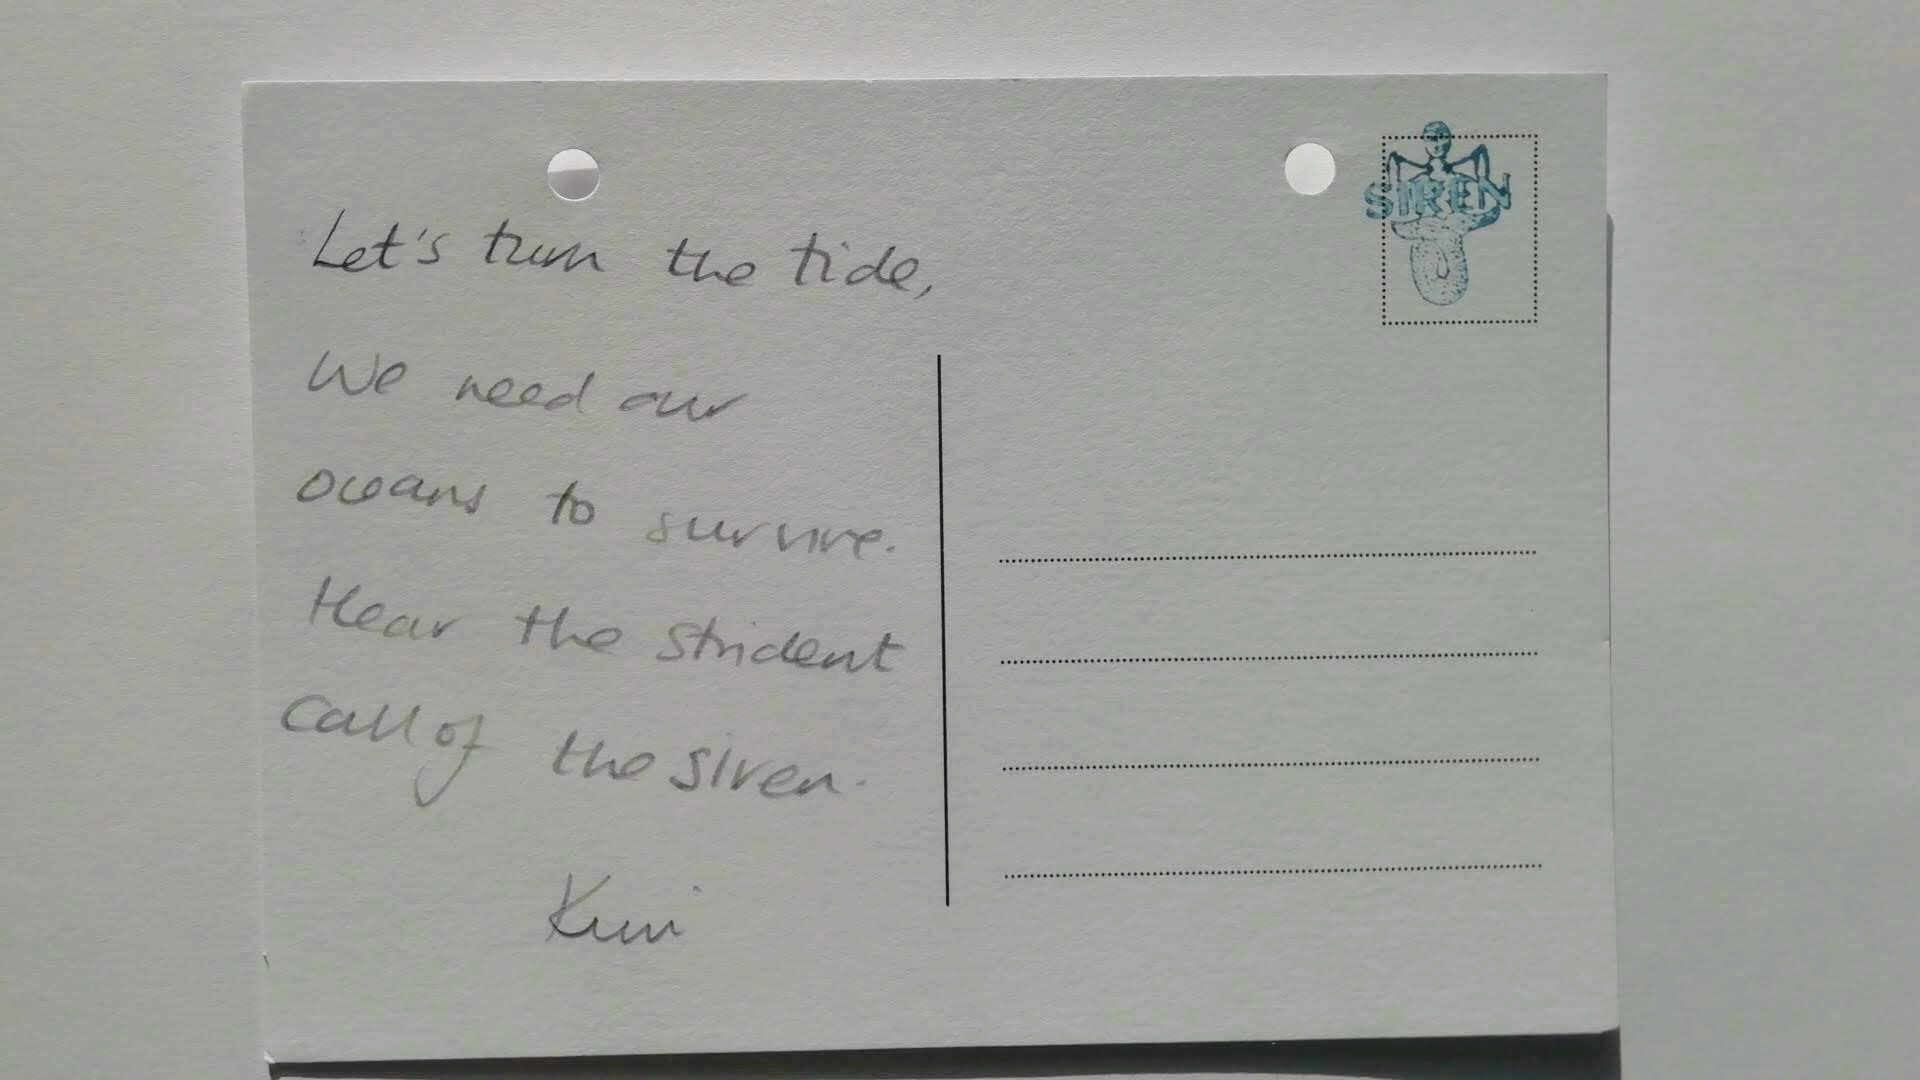 SIREN
Let's turn the tide,
We need our
oceans to survive.
Hear the strident
call of the siren.